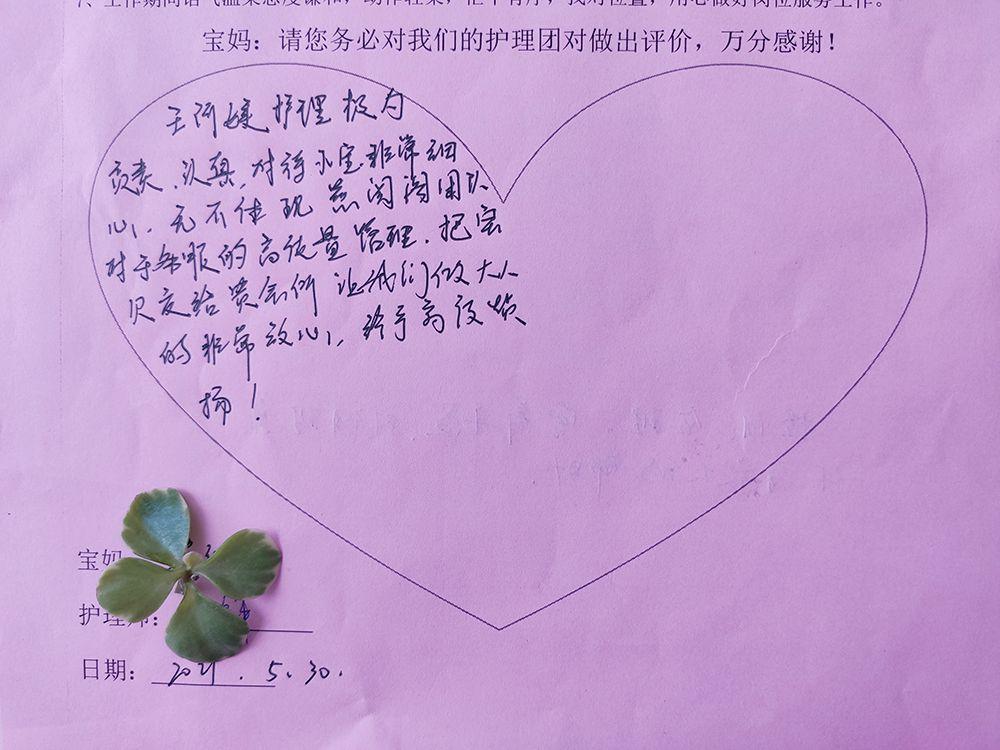 7、工作期间语气温柔态度谦和，动作轻柔，忙中有序，找对位置，用心做好岗位服务工作。
宝妈：请您务必对我们的护理团对做出评价，万分感谢！
王阿姨护理极为
负责、认真，对待小宝非常细
心，无不体现 燕阁阁团队
对于条顺的高质量管理，把宝
贝交给贵会所 让我们做大人
的非常放心，给予高度赞
扬！
宝妈
护理师：
日期：2021.5.30.